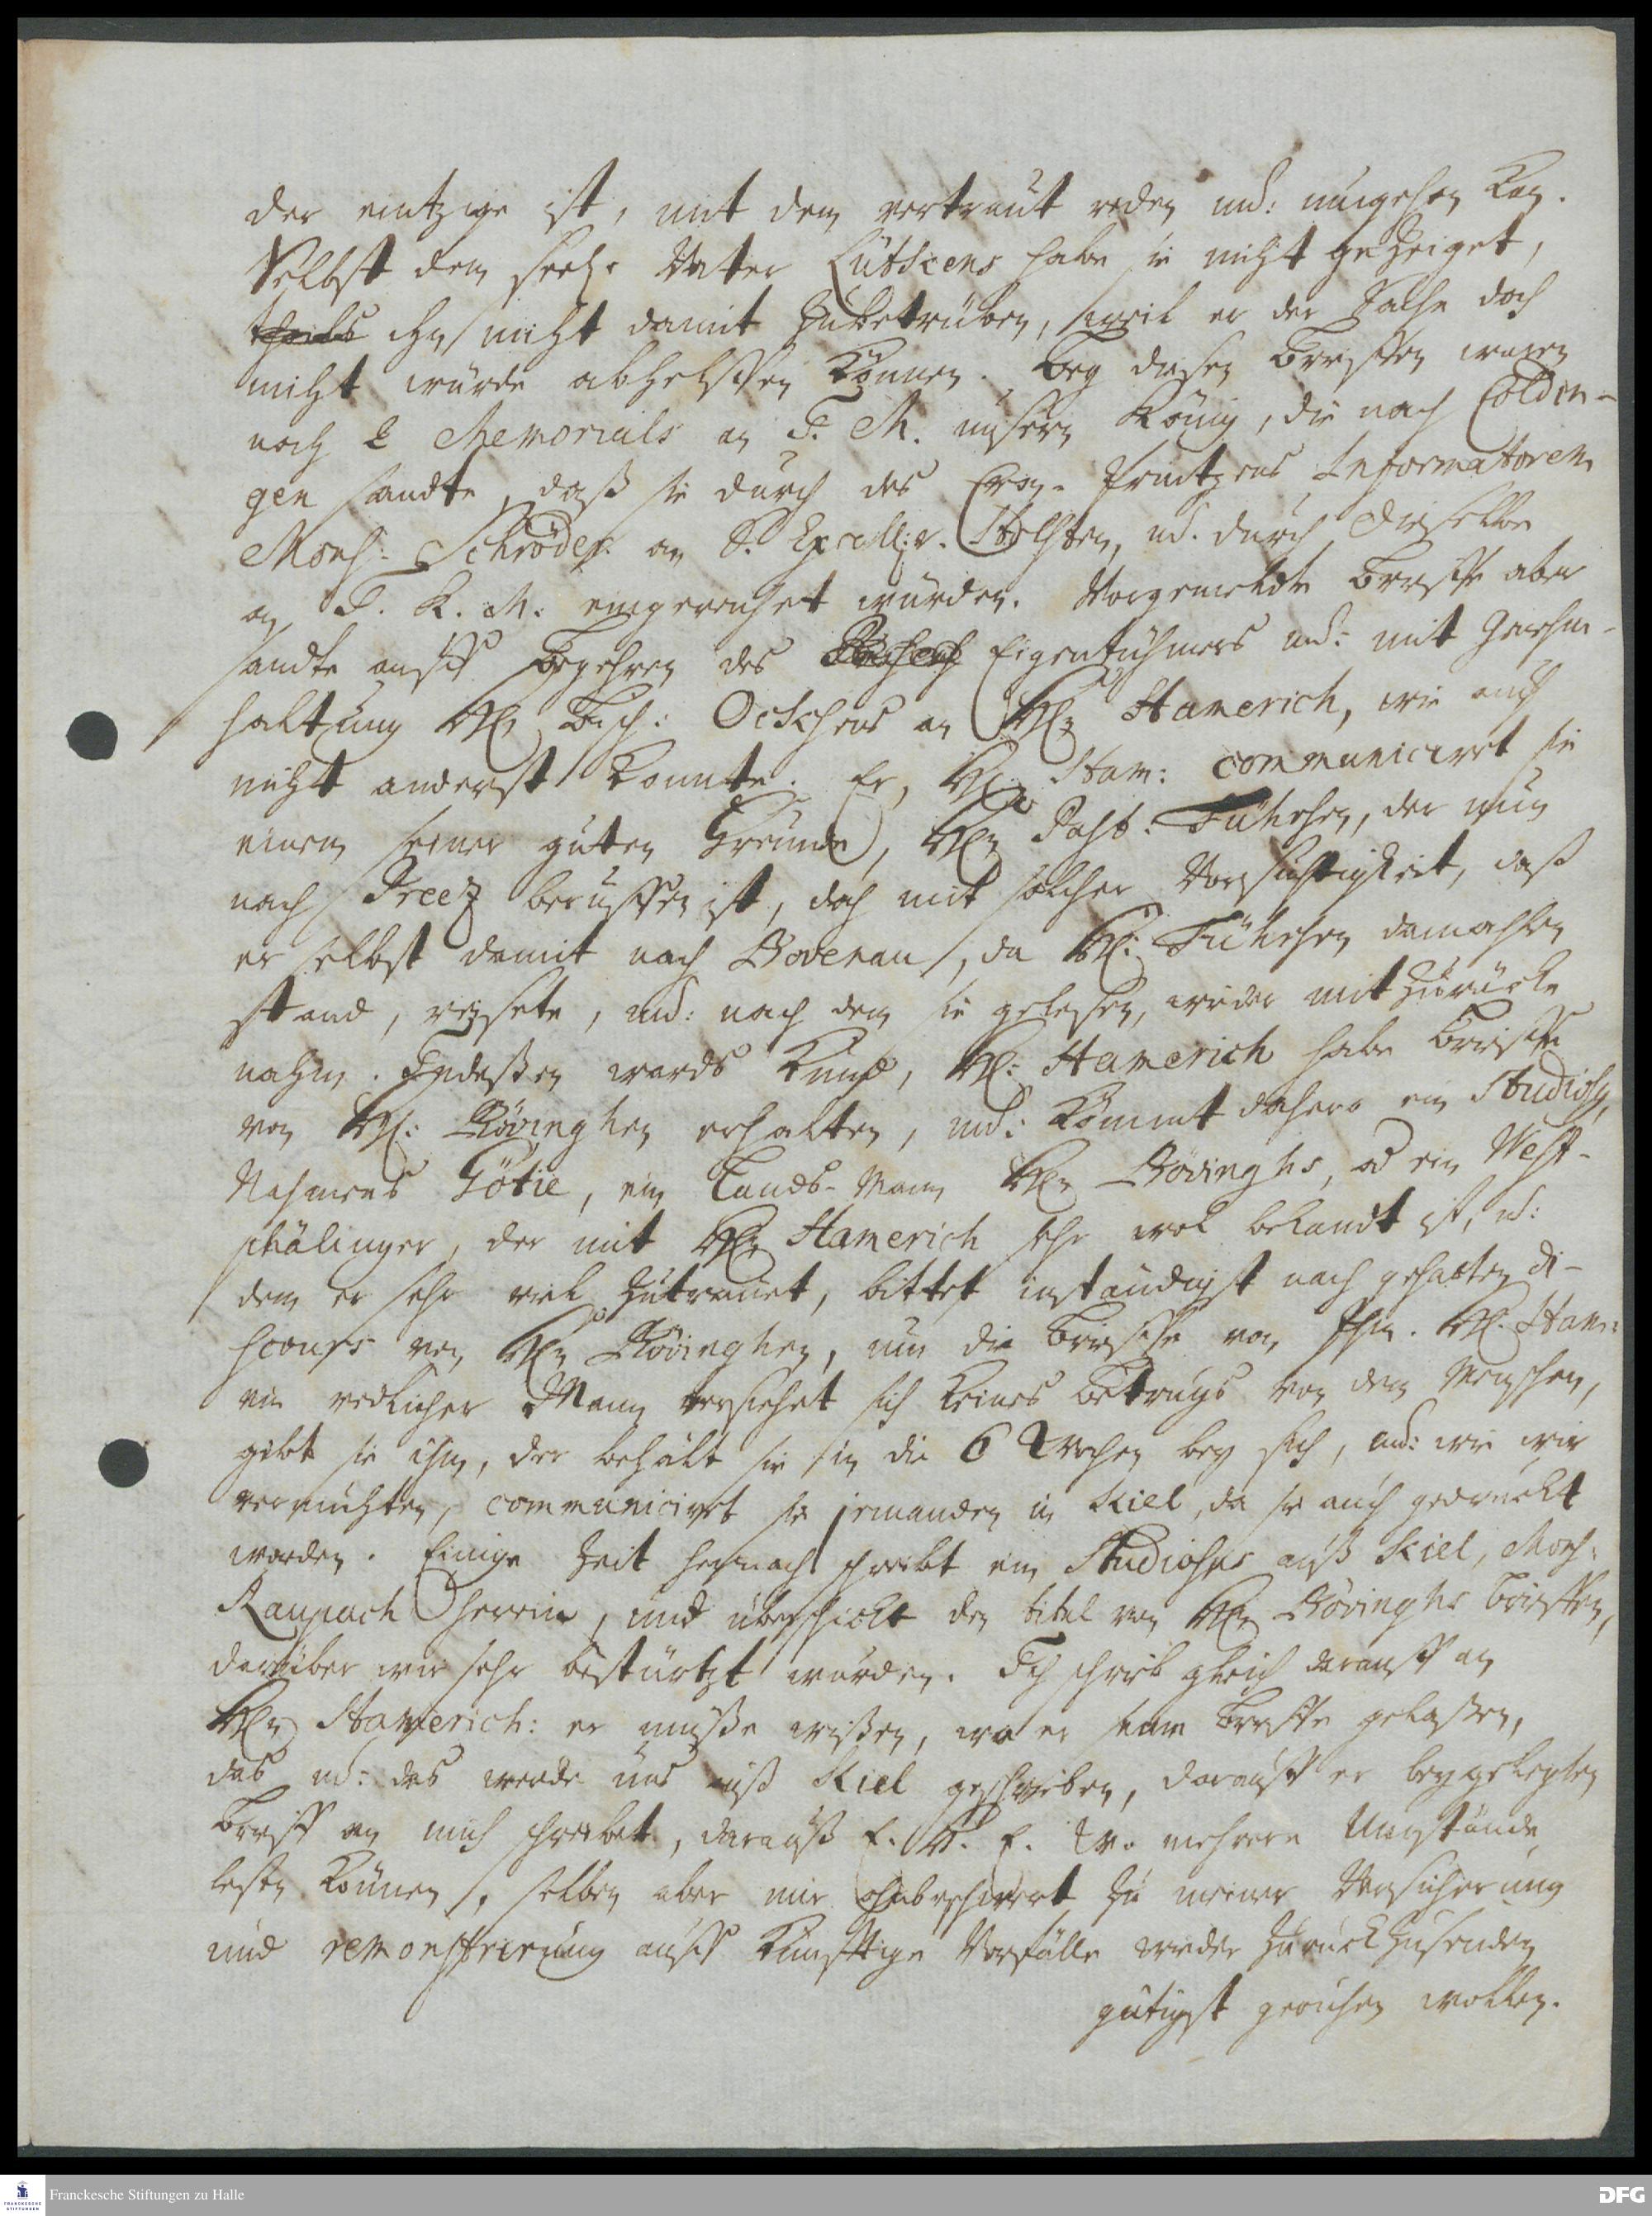 der eintzige ist, mit dem vertraut reden und: umgehen kan.
Selbst dem seel. Vater Lütkens habe sie nicht gezeiget,
theils ihn nicht damit zubetrüben, weil er der Sache doch
nicht würde abhelffen können. Bey diesen Brieffen waren
noch 2 Memorials an I. M. unsern König, die nach Coldin-
gen sandte, daß sie durch des Cron-Printzens Informatorem
Mons: Schröder an S. Excell: v. Holsten, ud. durch dieselbe
an I. K. M. eingereichet würden. Vorgemeldte Brieffe aber
sandte auff Begehren des Eigenthümers und: mit Genehm-
haltung H. Bisch: Ocksens an Hn Hamerich, wie auch
nicht anderst konnte. Er, H. Ham: communiciret sie
einem seiner guten Freunde, Hn Past: Führsen, der nun
nach Preez beruffen ist, doch mit solcher Vorsichtigkeit, daß
er selbst damit nach Bovenau, da H: Führsen damahlen
stand, reysete, und: nach dem sie gelesen, wieder mit zurücke
nahm. Indeßen wards kund, H: Hamerich habe Brieffe
von H: Bövinghen erhalten, und: kömmt dahero ein Studiosus,
Nahmens Götie, ein Lands-Mann Hn Bövinghs, als ein West-
phälinger, der mit Hn Hamerich sehr wol bekandt ist, ud:
dem er sehr viel zutrauet, bittet inständigst nach gehabten di-
scours von Hn Bövinghen, um die Brieffe von Ihm. H. Ham:
ein redlicher Mann versiehet sich keines Betrugs von dem Menschen,
gibt sie ihm, der behält sie in die 6 Wochen bey sich, und: wie wir
vermuthen, communiciret sie jemanden in Kiel, da sie auch gedruckt
worden. Einige Zeit hernach schreibt ein Studiosus auß Kiel, Mons:
Raupach herein, und überschickt den titel von Hn Bövinghs Brieffen,
darüber wir sehr bestürtzt wurden. Ich schrieb gleich darauff an
Hn Hamerich: er müße wißen, wo er seine Brieffe gelaßen,
das ud: das werde uns auß Kiel geschrieben, darauff er beygelegten
Brieff an mich schreibet, darauß E. H. E. W. mehrere Umstände
lesen können, selben aber mir ohnbeschwert zu meiner Versicherung
und remonstrirung auff künfftige Vorfälle wieder zurück zusenden
gütigst geruhen wollen.
Franckesche Stiftungen zu Halle
DFG